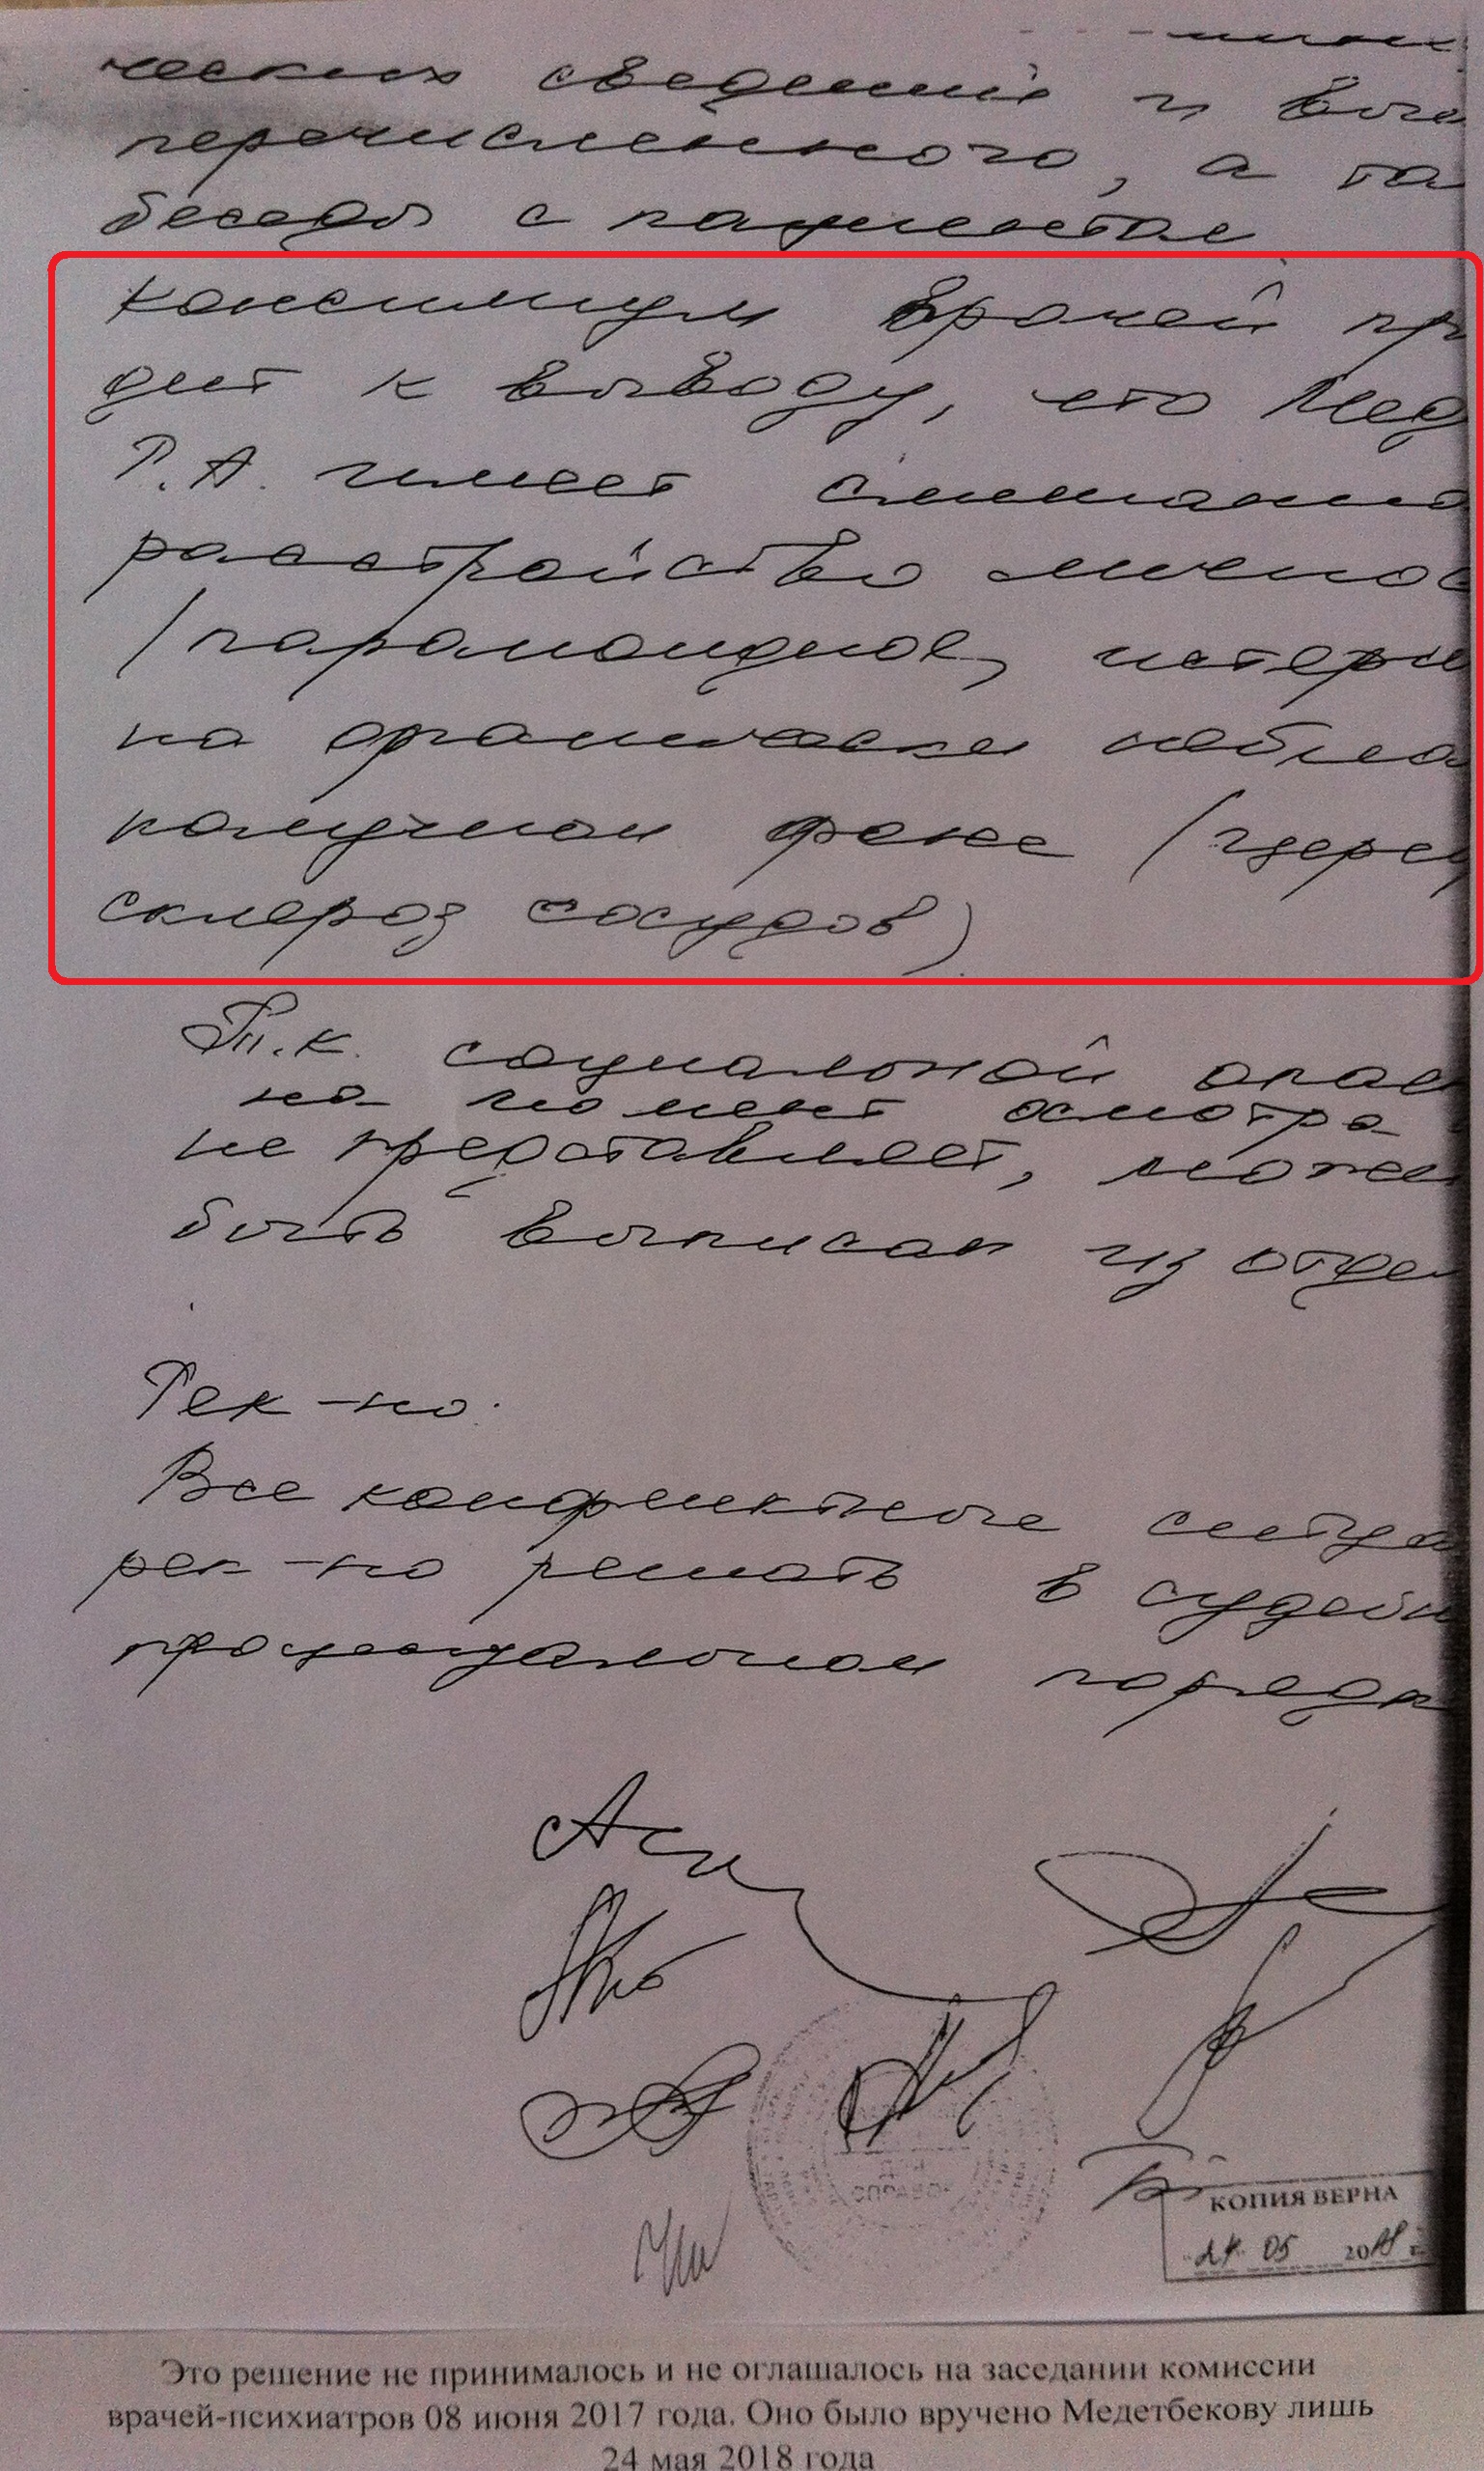 ческих сведений и выше
перечисленного, а та
беседы с пациентом
консилиум врачей при
дит к выводу, что Мед
Р.А. имеет смешанно
расстройство личнос
/параноидное, истери
на органически небла
получном фоне /церед
склероз сосудов)
Т.к. социальной опас
на момент осмотра
не представляет, може
быть выписан из отдел
Рек-но:
Все конфликтные ситуа
рек-но решать в судебн
процессуальном порядк
КОПИЯ ВЕРНА
24 05 2018 г.
Это решение не принималось и не оглашалось на заседании комиссии
врачей-психиатров 08 июня 2017 года. Оно было вручено Медетбекову лишь
24 мая 2018 года